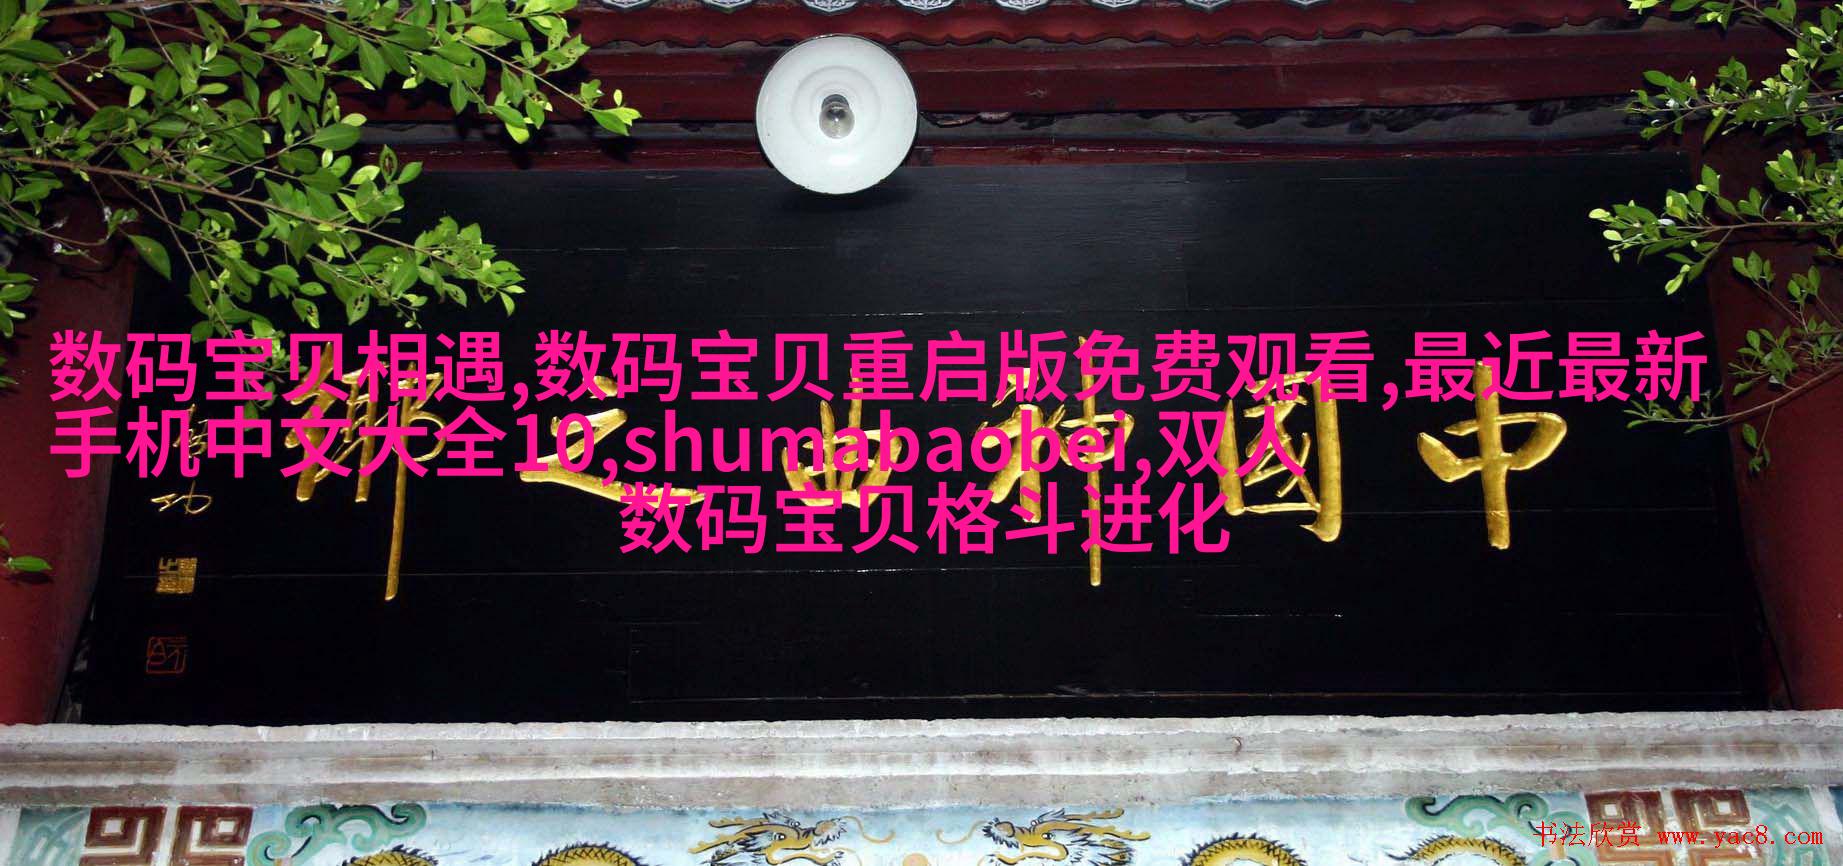 数码宝贝相遇,数码宝贝重启版免费观看,最近最新
手机中文大全10,shumabaobei,双人
数码宝贝格斗进化
中國曲之鄉
书法欣赏 www.yac8.com